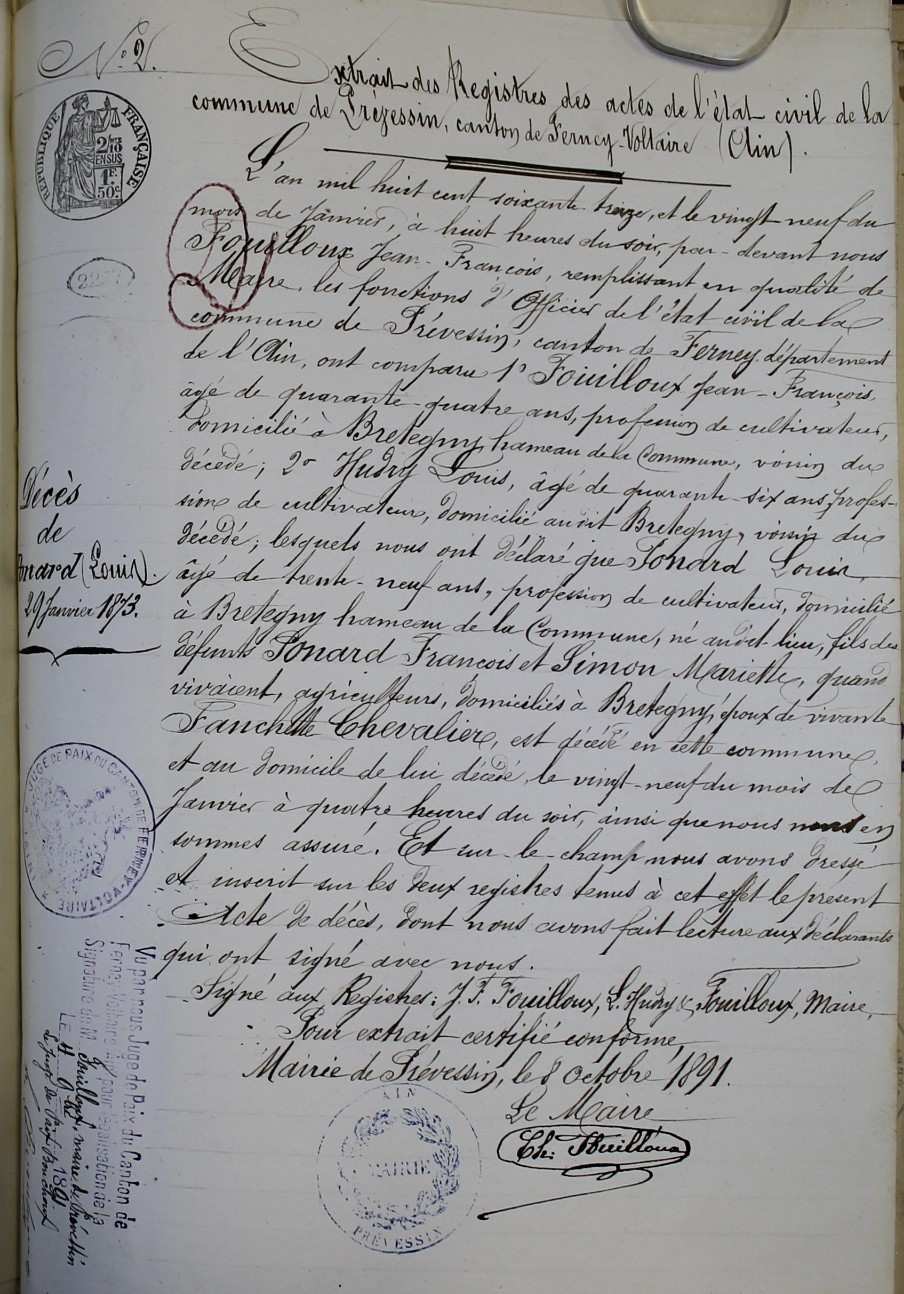 N° 2.
Extrait des Registres des actes de l'état civil de la
commune de Prévessin, canton de Ferney-Voltaire (Ain).
RÉPUBLIQUE FRANÇAISE
2/10
EN SUS
1F.
50c
L'an mil huit cent soixante treize, et le vingt neuf du
mois de Janvier, à huit heures du soir, par-devant nous
Fouilloux Jean-François, remplissant en qualité de
Maire, les fonctions d'Officier de l'état civil de la
commune de Prévessin, canton de Ferney, département
de l'Ain, ont comparu 1° Fouilloux Jean-François,
âgé de quarante-quatre ans, profession de cultivateur,
domicilié à Bretegny, hameau de la Commune, voisin du
décédé; 2° Hudry Louis, âgé de quarante-six ans, profes-
sion de cultivateur, domicilié audit Bretegny, voisin du
décédé; lesquels nous ont déclaré que Ponard Louis,
âgé de trente-neuf ans, profession de cultivateur, domicilié
à Bretegny hameau de la Commune, né audit lieu, fils des
défunts Ponard François et Simon Mariette, quand
vivaient, agriculteurs, domiciliés à Bretegny, époux de vivante
Fanchette Chevalier, est décédé en cette commune,
et au domicile de lui décédé, le vingt-neuf du mois de
Janvier à quatre heures du soir, ainsi que nous nous en
sommes assuré. Et sur-le-champ nous avons dressé
et inscrit sur les deux registres tenus à cet effet le présent
Acte de décès, dont nous avons fait lecture aux déclarants
qui ont signé avec nous.
Signé aux Registres: J. F. Fouilloux, L. Hudry & Fouilloux, Maire.
Pour extrait certifié conforme,
Mairie de Prévessin, le 8 Octobre 1891.
Le Maire
Ch. Fouilloux
AIN
MAIRIE
PRÉVESSIN
Décès
de
onard (Louis).
29 Janvier 1873.
JUGE DE PAIX DU CANTON DE FERNEY-VOLTAIRE
Vu par nous Juge de Paix du Canton de
Ferney-Voltaire pour légalisation de la
Signature de M Fouilloux, maire de Prévessin
LE 1891
Le Juge de Paix